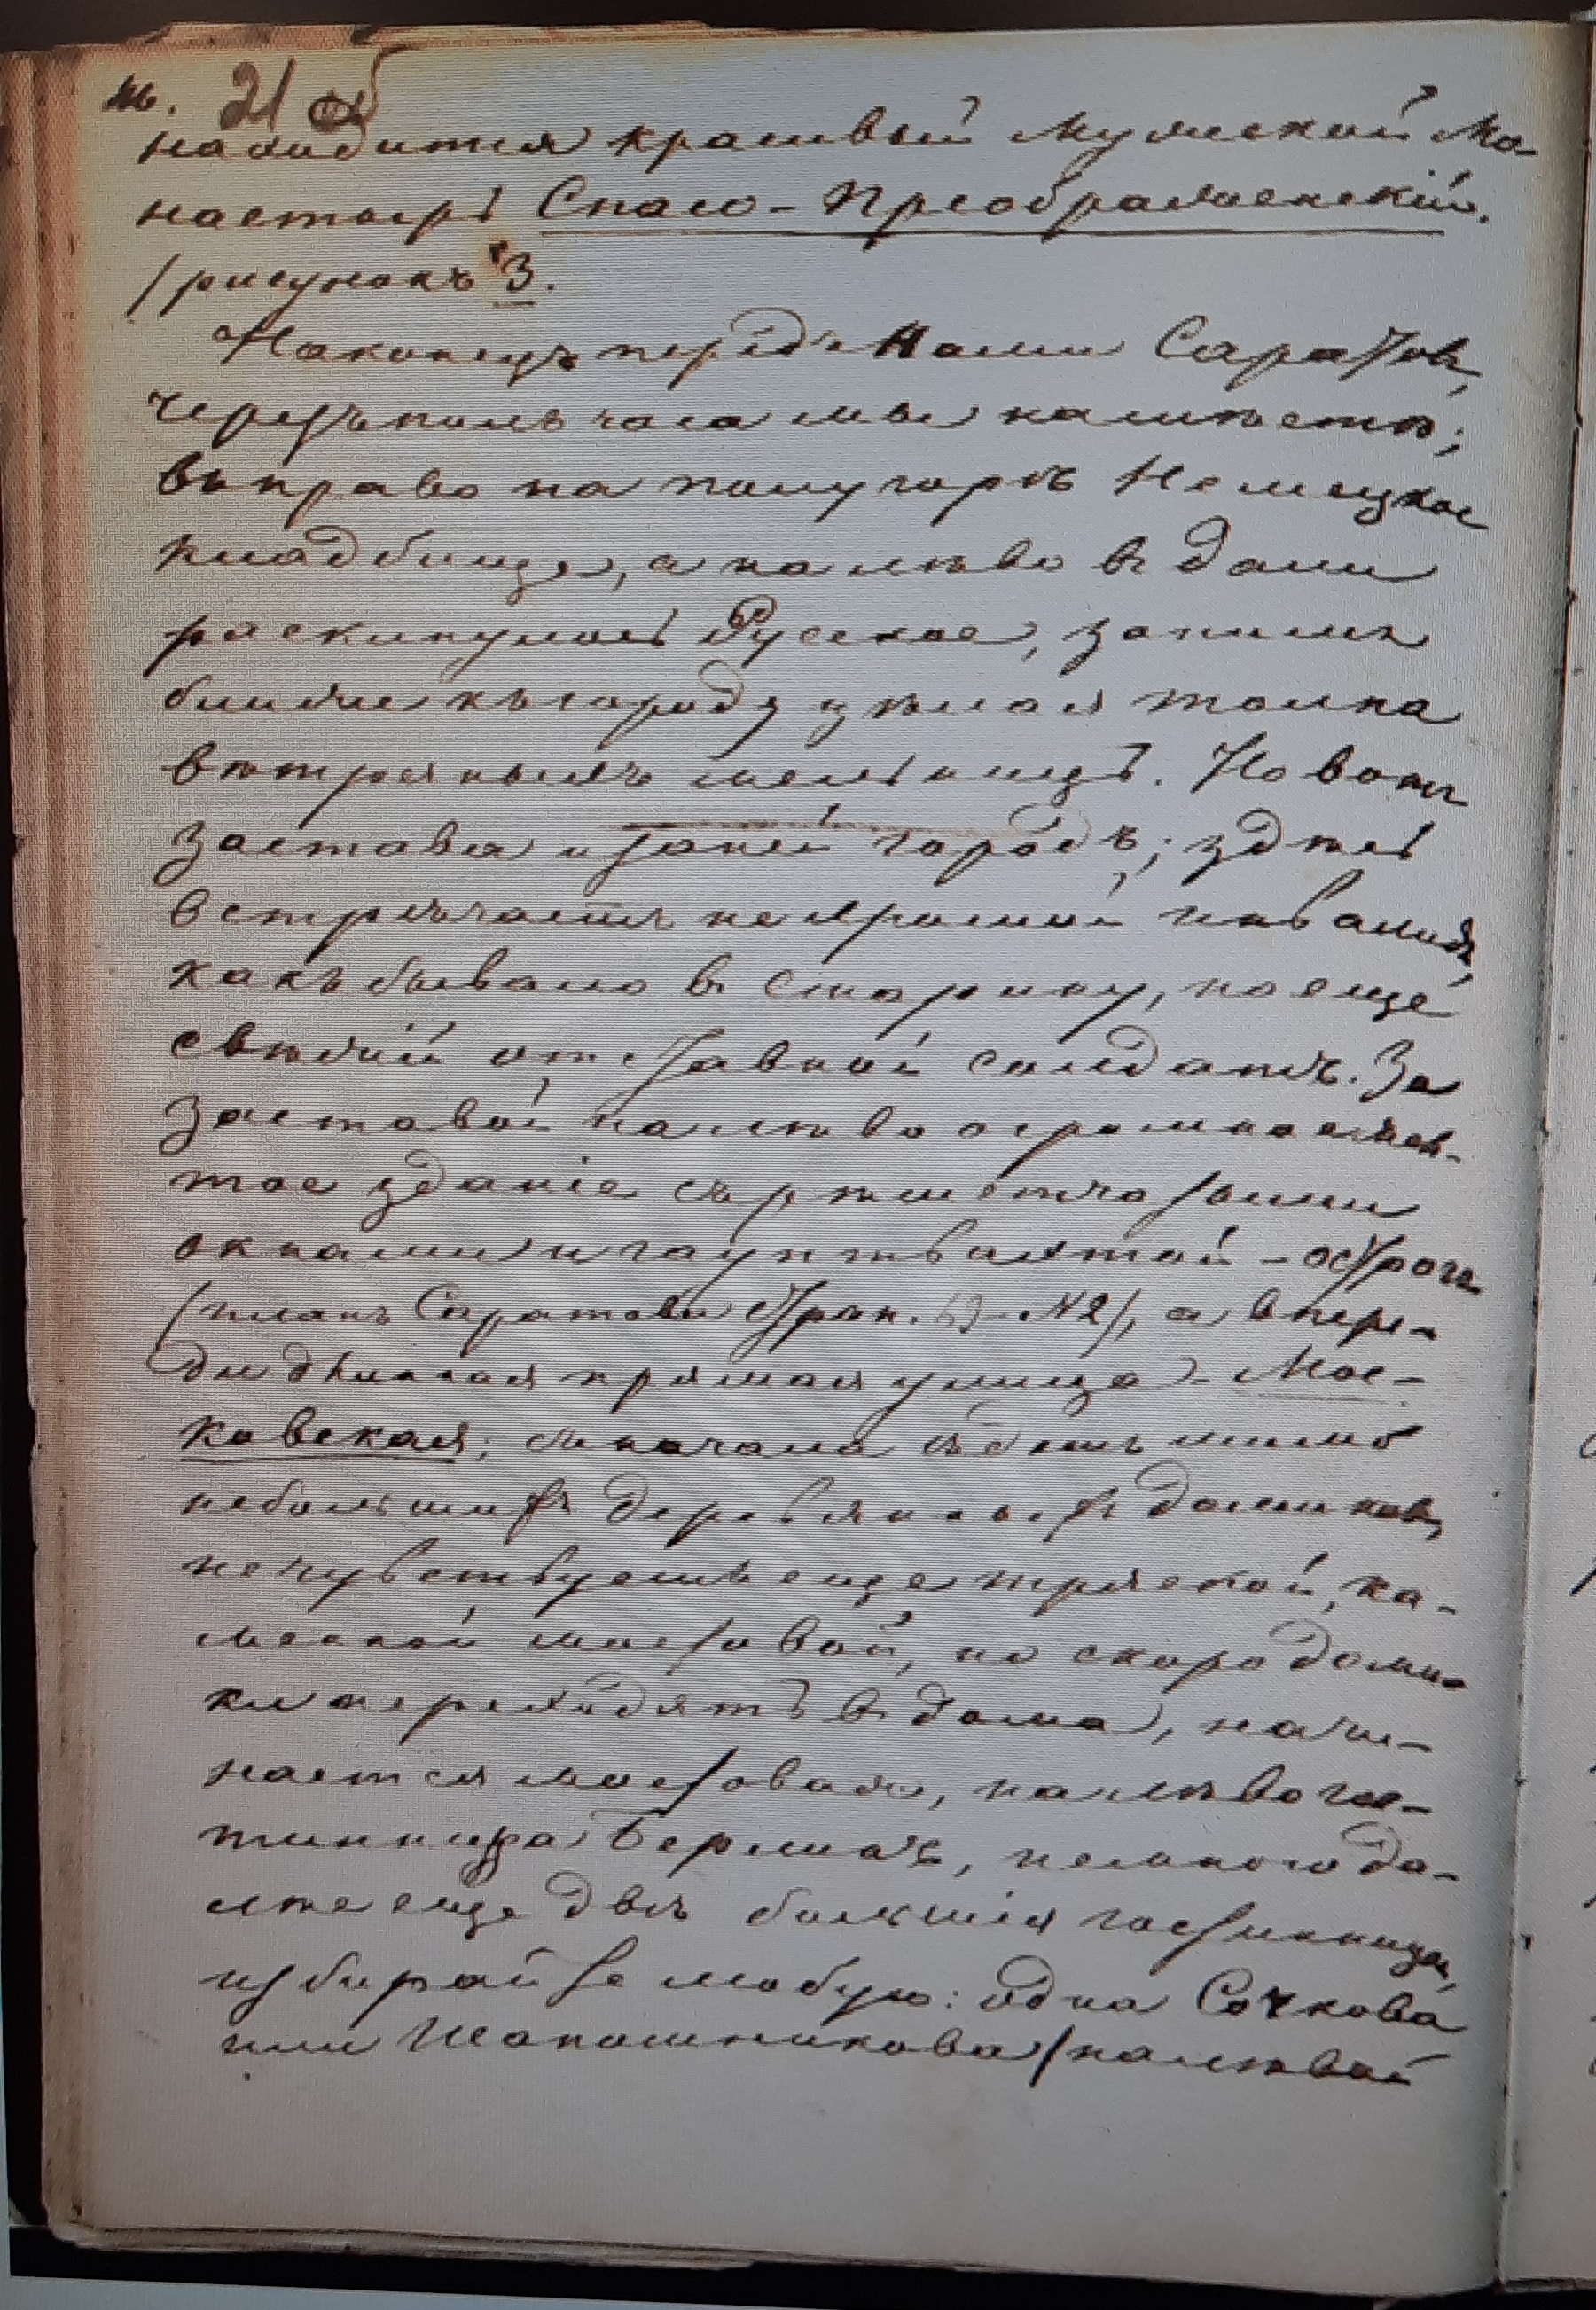 16. 21 об
находится красивый Мужской Мо-
настырь Спасо-Преображенскій.
/рисунокъ 3.
Наконецъ передъ нами Саратовъ,
черезъ полъ часа мы на мѣстѣ;
вправо на полугорѣ Немецкое
кладбище, а налѣво въ дали
раскинулось Русское, за нимъ
ближе къ городу цѣлая толпа
вѣтряныхъ мельницъ. Но вотъ
застава и за ней городъ; здѣсь
встрѣчаетъ не хромой инвалидъ,
какъ бывало въ старину, но еще
свѣжій отставной солдатъ. За
заставой налѣво огромное жел-
тое зданіе съ рѣшетчатыми
окнами и гауптвахтой - острогъ
/планъ Саратова стран. №2/, а впере-
ди длинная прямая улица - Мос-
ковская; сначала ѣдешь мимо
небольшихъ деревянныхъ домиковъ,
не чувствуешь еще тряской, ка-
менной мостовой, но скоро доми-
ки переходятъ въ дома, начи-
нается мостовая, налѣво гос-
тинница Берлинъ, немного да-
лѣе еще двѣ большія гостинницы,
избирайте любую: одна Сочкова
или Шапошникова /налѣвой